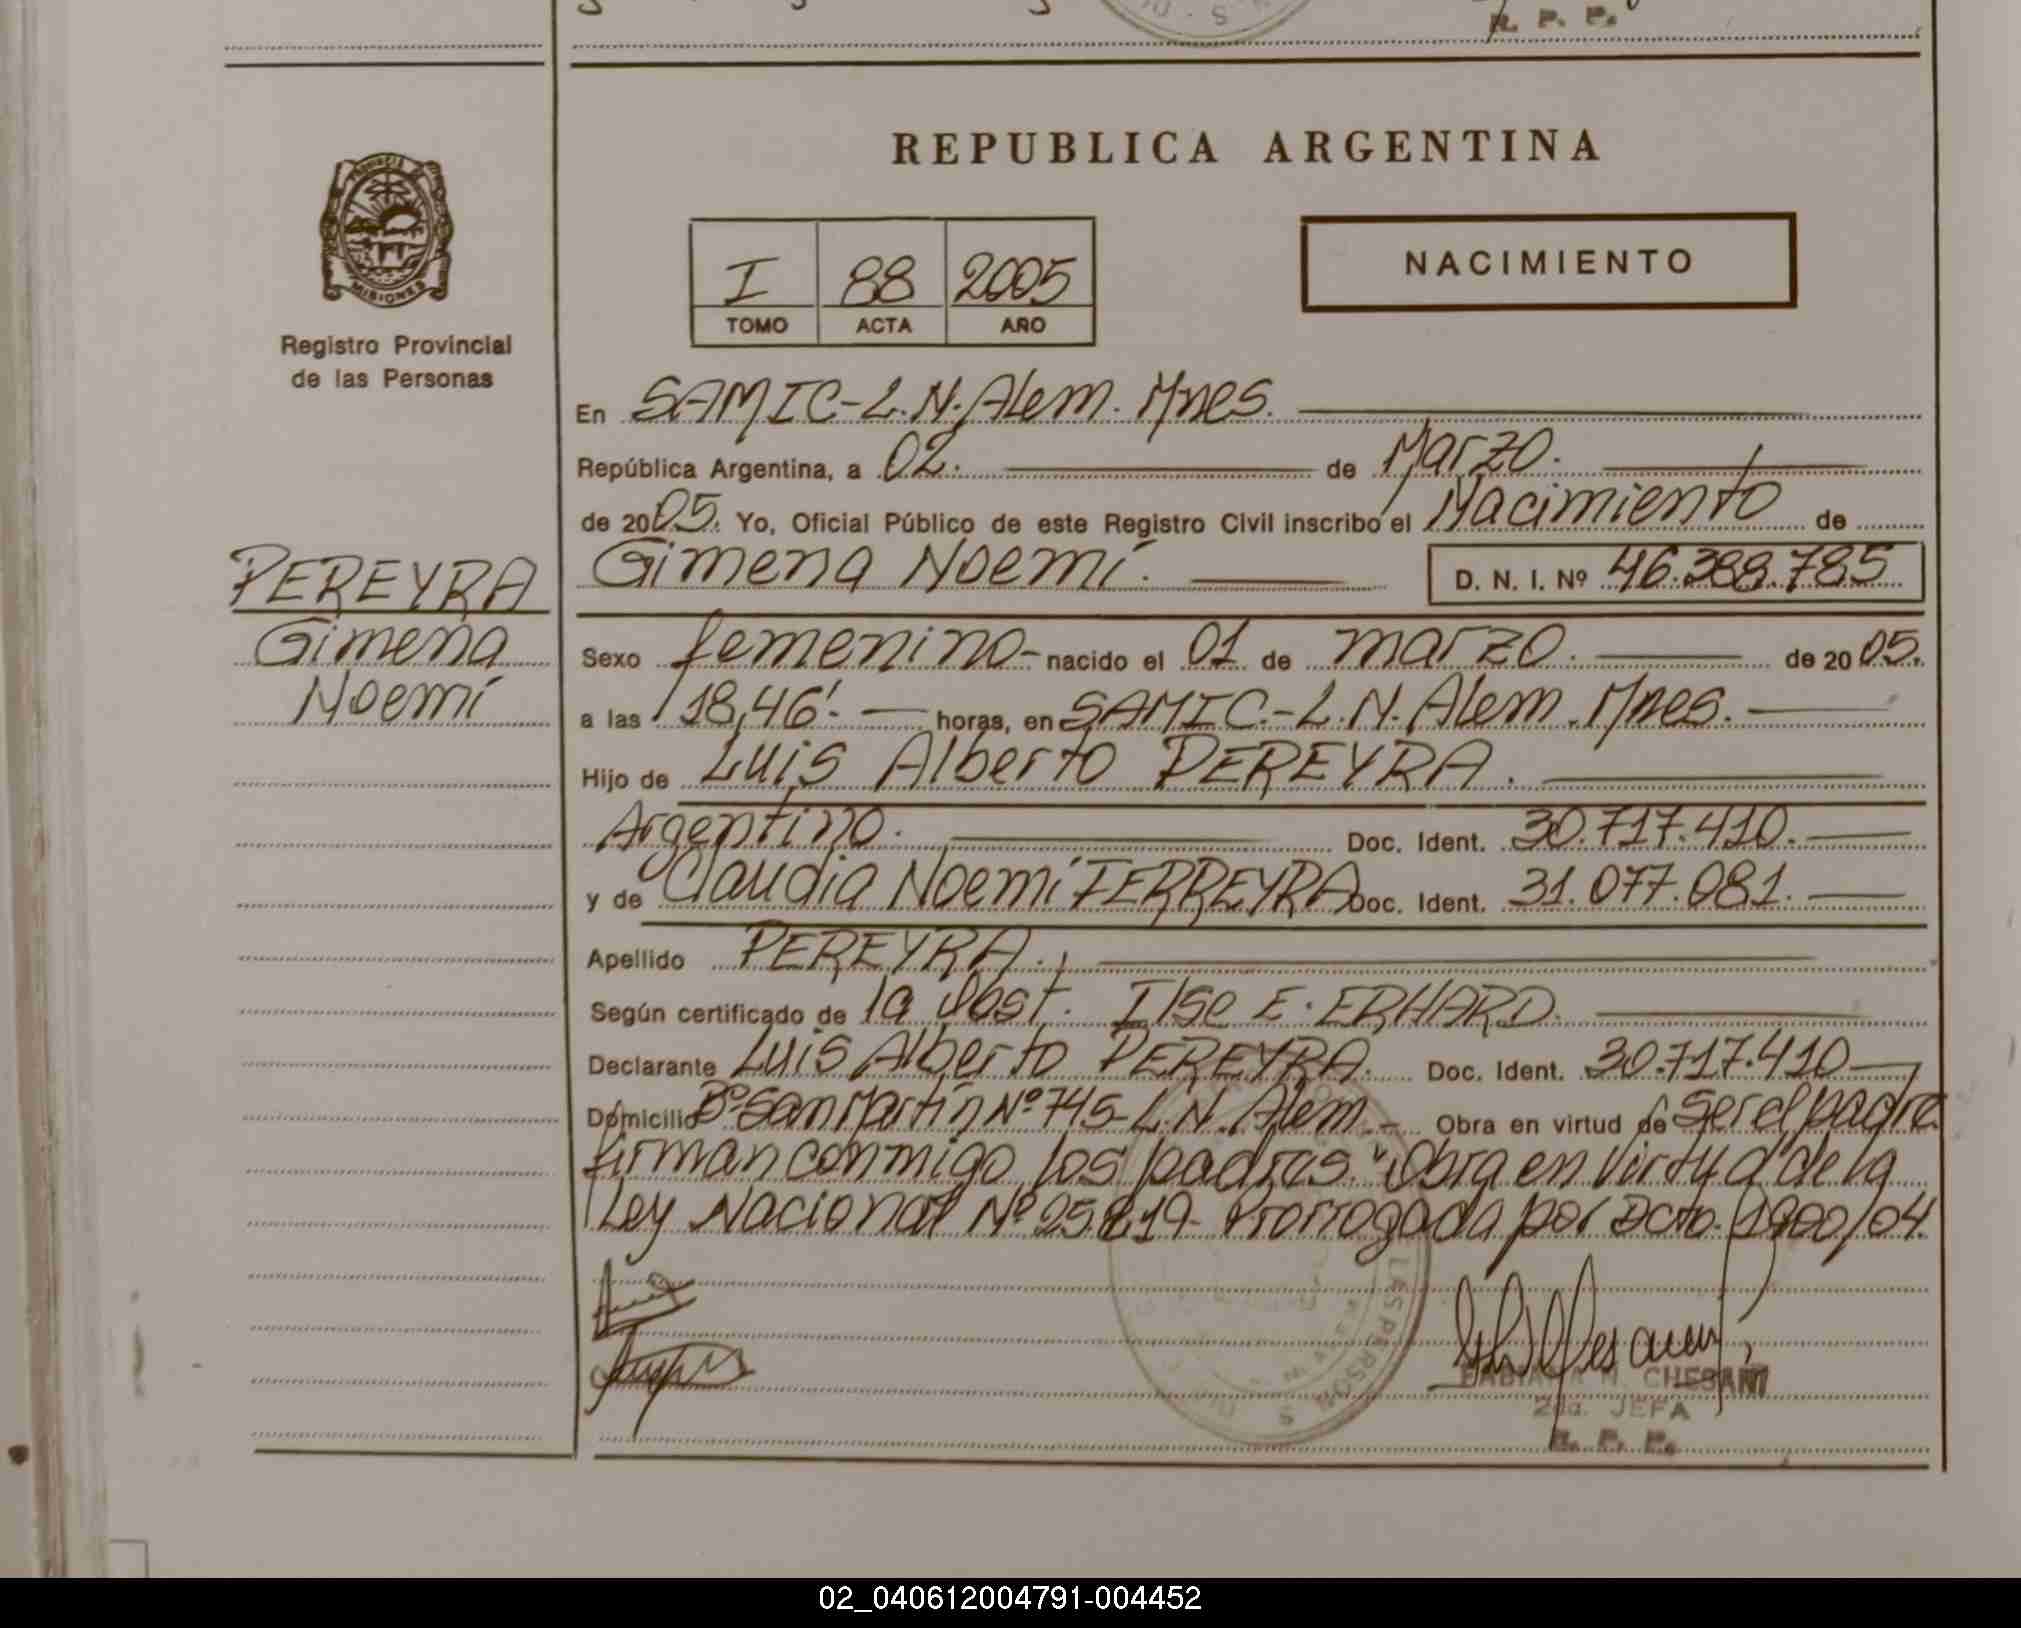 R. P. P.
REPUBLICA ARGENTINA
PROVINCIA DE
MISIONES
Registro Provincial
de las Personas
I 88 2005
TOMO ACTA AÑO
NACIMIENTO
En SAMIC-L.N.Alem. Mnes.
República Argentina, a 02. de Marzo.
de 2005. Yo, Oficial Público de este Registro Civil inscribo el Nacimiento de
Gimena Noemí. D. N. I. Nº 46.388.785
PEREYRA
Gimena
Noemí
Sexo femenino- nacido el 01 de marzo. de 2005.
a las 18,46'. horas, en SAMIC.-L.N. Alem. Mnes.
Hijo de Luis Alberto PEREYRA.
Argentino. Doc. Ident. 30.717.410.
y de Claudia Noemí FERREYRA Doc. Ident. 31.077.081.
Apellido PEREYRA.
Según certificado de la Obst. Ilse E. ERHARD.
Declarante Luis Alberto PEREYRA. Doc. Ident. 30.717.410
Domicilio Bº San Martín Nº 745-L.N. Alem.- Obra en virtud de ser el padre
firman conmigo los padres. "Obra en Virtud de la
Ley Nacional Nº 25.819- Prorrogada por Dcto. 1900/04.
FABIANA N. CHESANI
2da. JEFA
R. P. P.
02_040612004791-004452